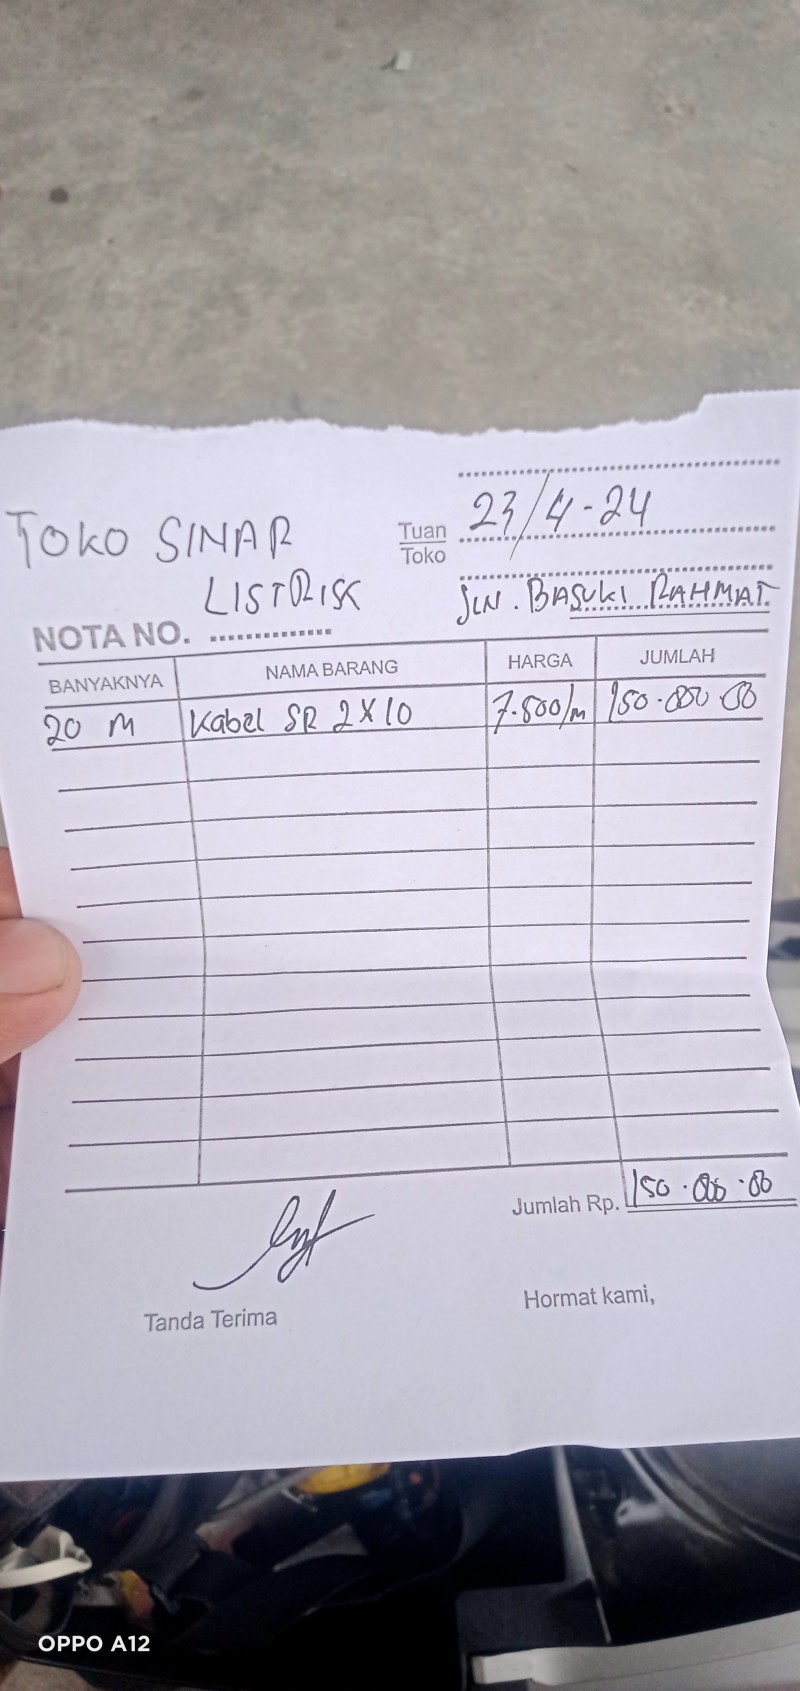 TOKO SINAR
LISTRISK
Tuan
Toko
23/4-24
JLN. BASUKI RAHMAT
NOTA NO.
BANYAKNYA NAMA BARANG HARGA JUMLAH
20 M Kabel SR 2X10 7.500/m 150.000.00
Jumlah Rp. 150.000.00
Tanda Terima
Hormat kami,
OPPO A12